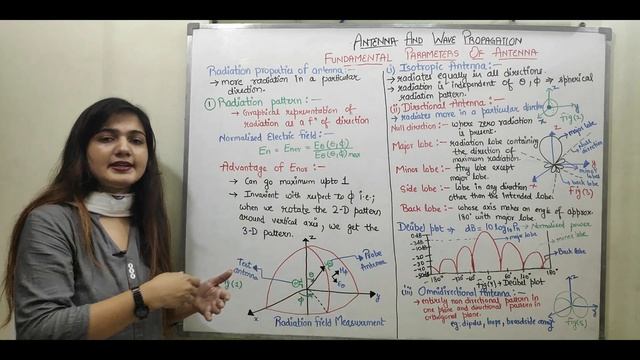 ANTENNA AND WAVE PROPAGATION
FUNDAMENTAL PARAMETERS OF ANTENNA
Radiation properties of antenna:-
→ more radiation in a particular
direction.
① Radiation pattern:-
→ Graphical representation of
radiation as a fⁿ of direction
Normalised Electric field:-
En = Enor = Eθ(θ,ϕ)
Eθ(θ,ϕ)max
Advantage of Enor:-
→ Can go maximum upto 1
→ Invariant with respect to ϕ i.e;
when we rotate the 2-D pattern
around vertical axis, we get the
3-D pattern.
z
Test
antenna
Probe
Antenna
θ
ϕ
x
y
Radiation Field Measurement
(i) Isotropic Antenna:-
→ radiates equally in all directions.
→ radiation is independent of θ, ϕ → spherical
radiation pattern.
(ii) Directional Antenna:-
→ radiates more in a particular direction
fig(2)
Null direction:- where zero radiation
is present.
Major lobe:- radiation lobe containing
the direction of
maximum radiation.
Minor lobe:- Any lobe except
major lobe.
Side lobe:- lobe in any direction
other than the intended lobe.
Back lobe:- whose axis makes an angle of approx.
180° with major lobe.
major lobe
null
direction
side lobe
back lobe
fig(3)
Decibel plot:- dB = 10 log10 Pn → Normalised power
major lobe
minor lobe
Back lobe
fig(4) Decibel plot
(iii) Omnidirectional Antenna:-
→ entirely non directional pattern in
one plane and directional pattern in
orthogonal plane.
eg: dipoles, loops, broadside array
fig(5)